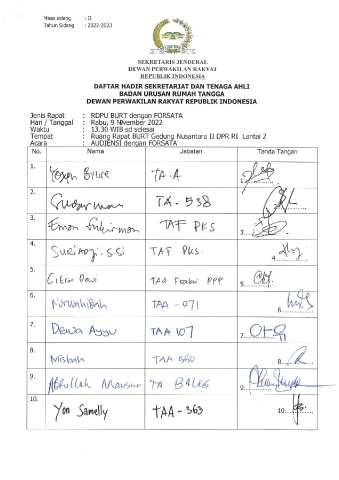 Masa sidang : II
Tahun Sidang : 2022-2023
SEKRETARIS JENDERAL
DEWAN PERWAKILAN RAKYAT
REPUBLIK INDONESIA
DAFTAR HADIR SEKRETARIAT DAN TENAGA AHLI
BADAN URUSAN RUMAH TANGGA
DEWAN PERWAKILAN RAKYAT REPUBLIK INDONESIA
Jenis Rapat : RDPU BURT dengan FORSATA
Hari / Tanggal : Rabu, 9 November 2022
Waktu : 13.30 WIB sd selesai
Tempat : Ruang Rapat BURT Gedung Nusantara II DPR RI Lantai 2
Acara : AUDIENSI dengan FORSATA
No. Nama Jabatan Tanda Tangan
1. TA.A 1.
2. Sudarman TA. 538 2.
3. Eman Sulaiman TAF PKS 3.
4. TAF PKS. 4.
5. Citra Dewi TAA Fraksi PPP 5.
6. Nurwahibah TAA - 271 6.
7. Dewa Ayu TAA 107 7.
8. Misbah TAA 550 8.
9. Abdullah Mansur TA BALEG 9.
10. Yon Samelly TAA - 363 10.